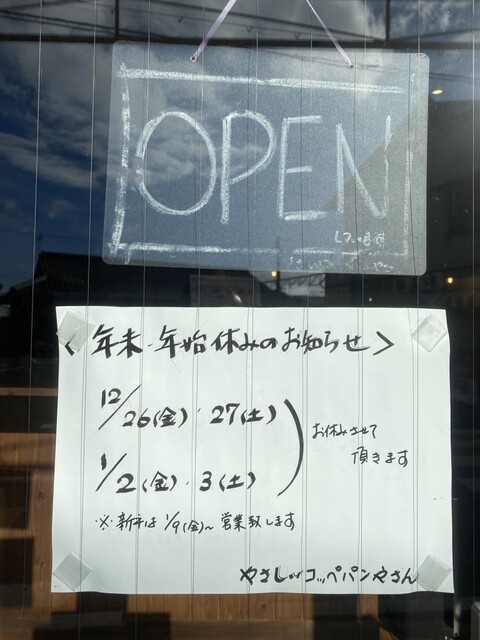 OPEN
<年末・年始休みのお知らせ>
12/26(金)・27(土)
お休みさせて
頂きます
1/2(金)・3(土)
※新年は1/9(金)〜営業致します
やさしいコッペパンやさん